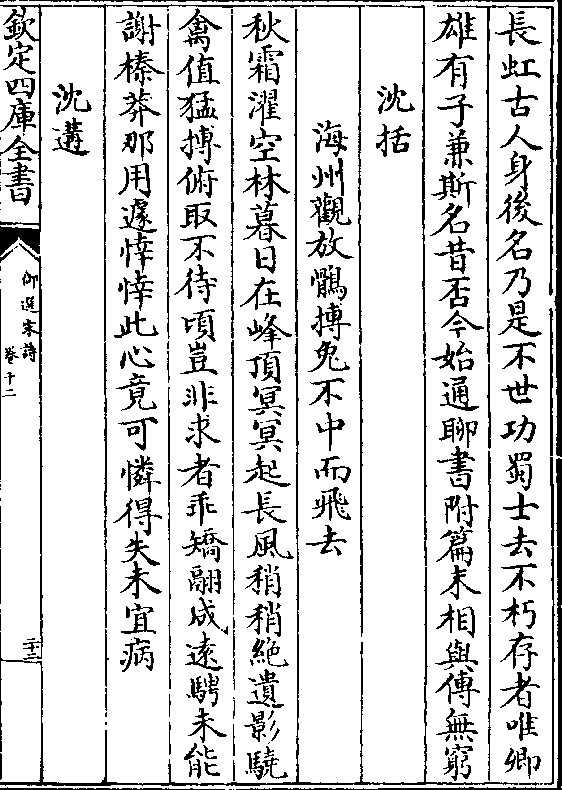 長虹古人身後名乃是不世功蜀士去不朽存者唯卿
雄有子兼斯名昔否今始通聊書附篇末相與傳無窮
沈括
海州觀放鶻搏兔不中而飛去
秋霜濯空林暮日在峰頂冥冥起長風稍稍絶遺影驍
禽值猛摶俯取不待頃豈非求者乖矯翮成遠騁未能
謝榛莽那用遽悻悻此心竟可憐得失未宜病
沈遘
欽定四庫全書
御選宋詩
卷十二
二十三